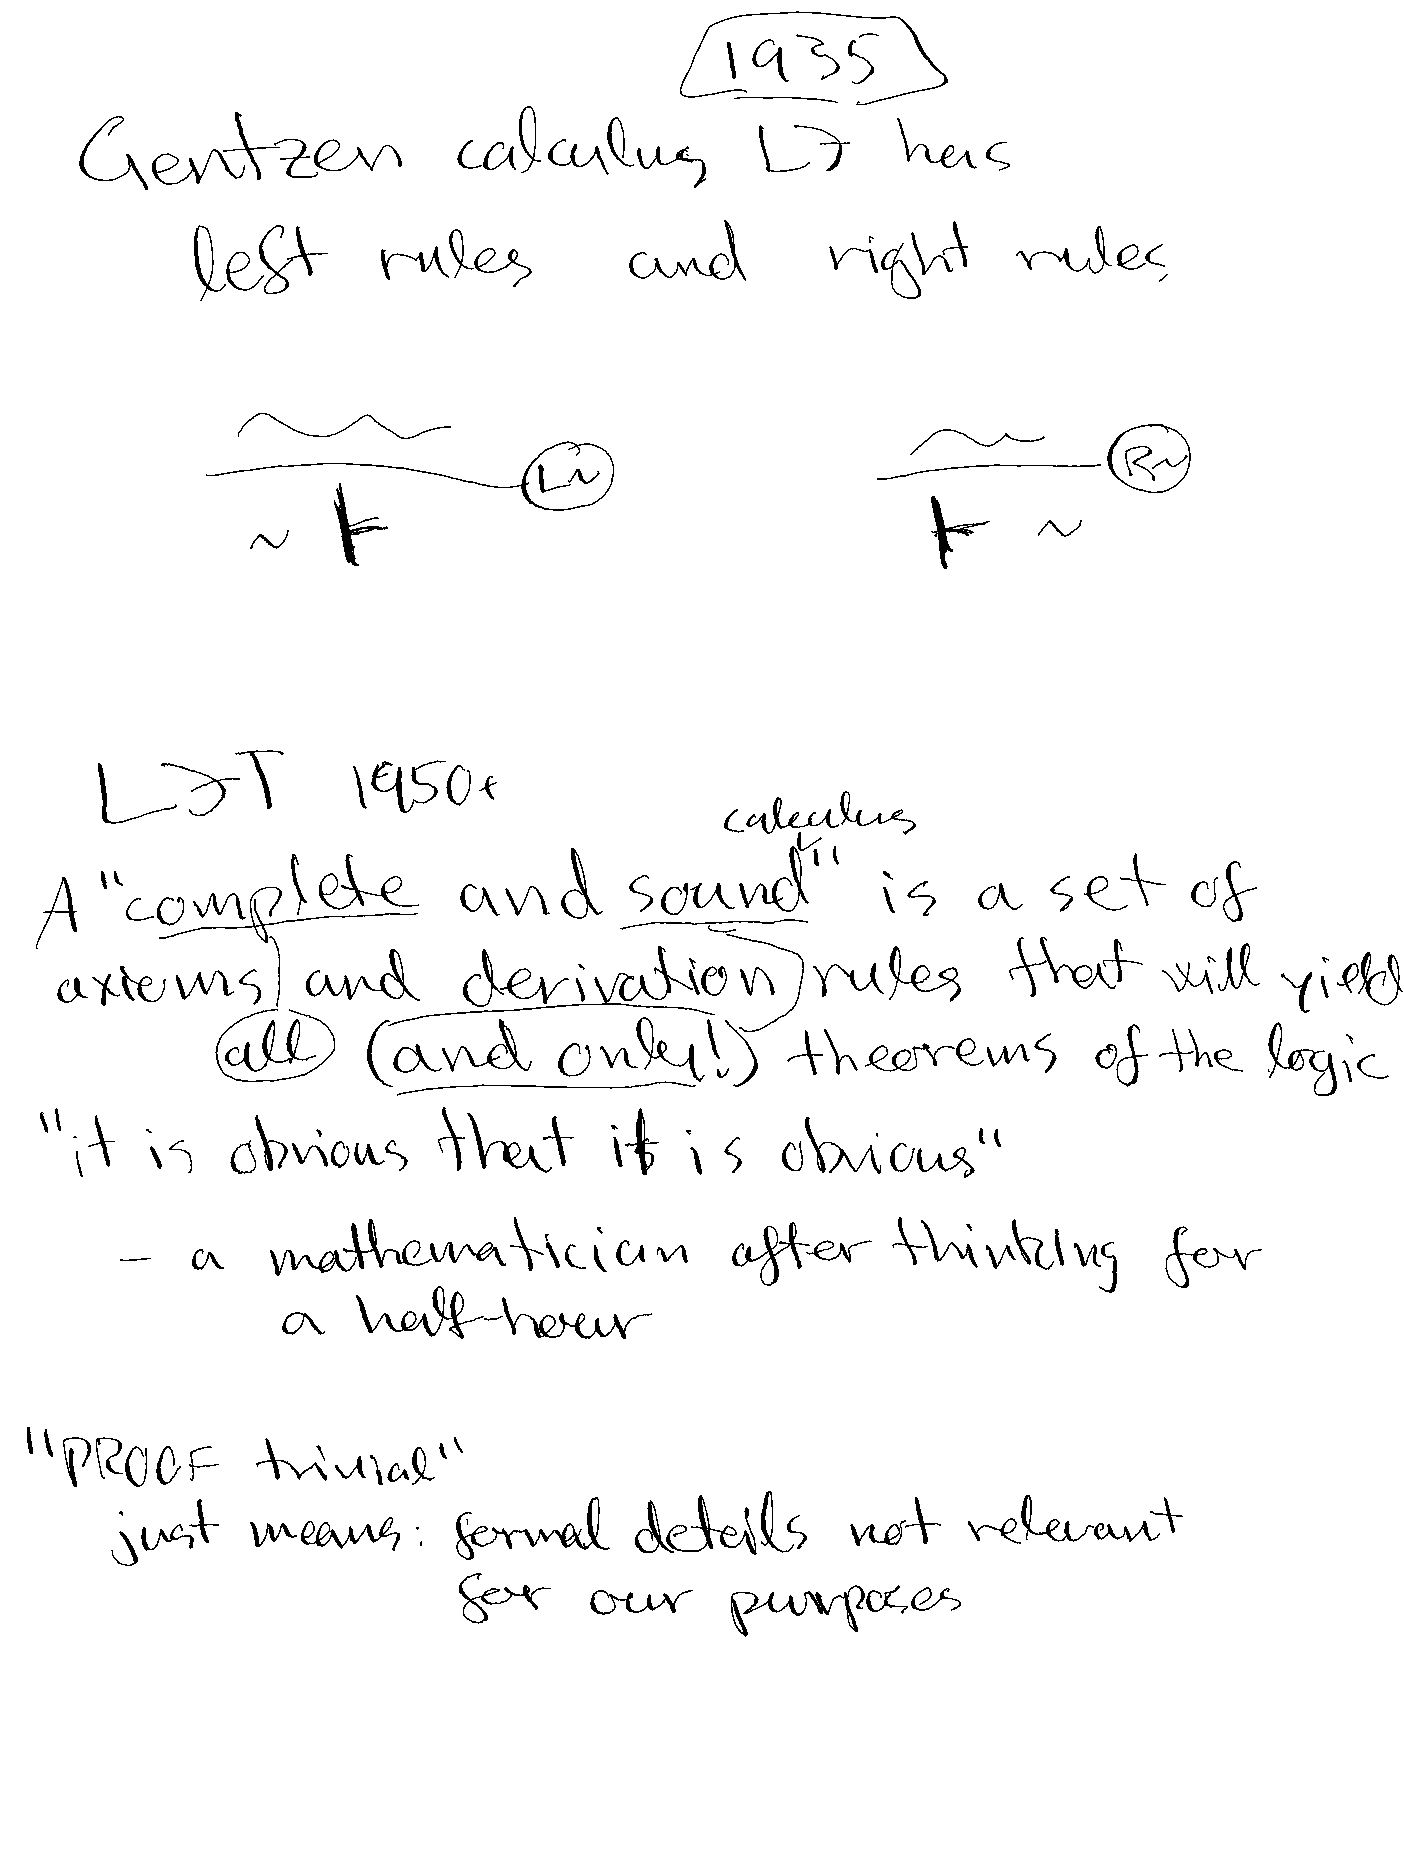 1935
Gentzen calculus LJ has
left rules and right rules
L~
R~
~ ⊢
⊢ ~
LJT 1950+
calculus
A "complete and sound" is a set of
axioms and derivation rules that will yield
all (and only!) theorems of the logic
"it is obvious that it is obvious"
- a mathematician after thinking for
a half-hour
"PROOF trivial"
just means: formal details not relevant
for our purposes